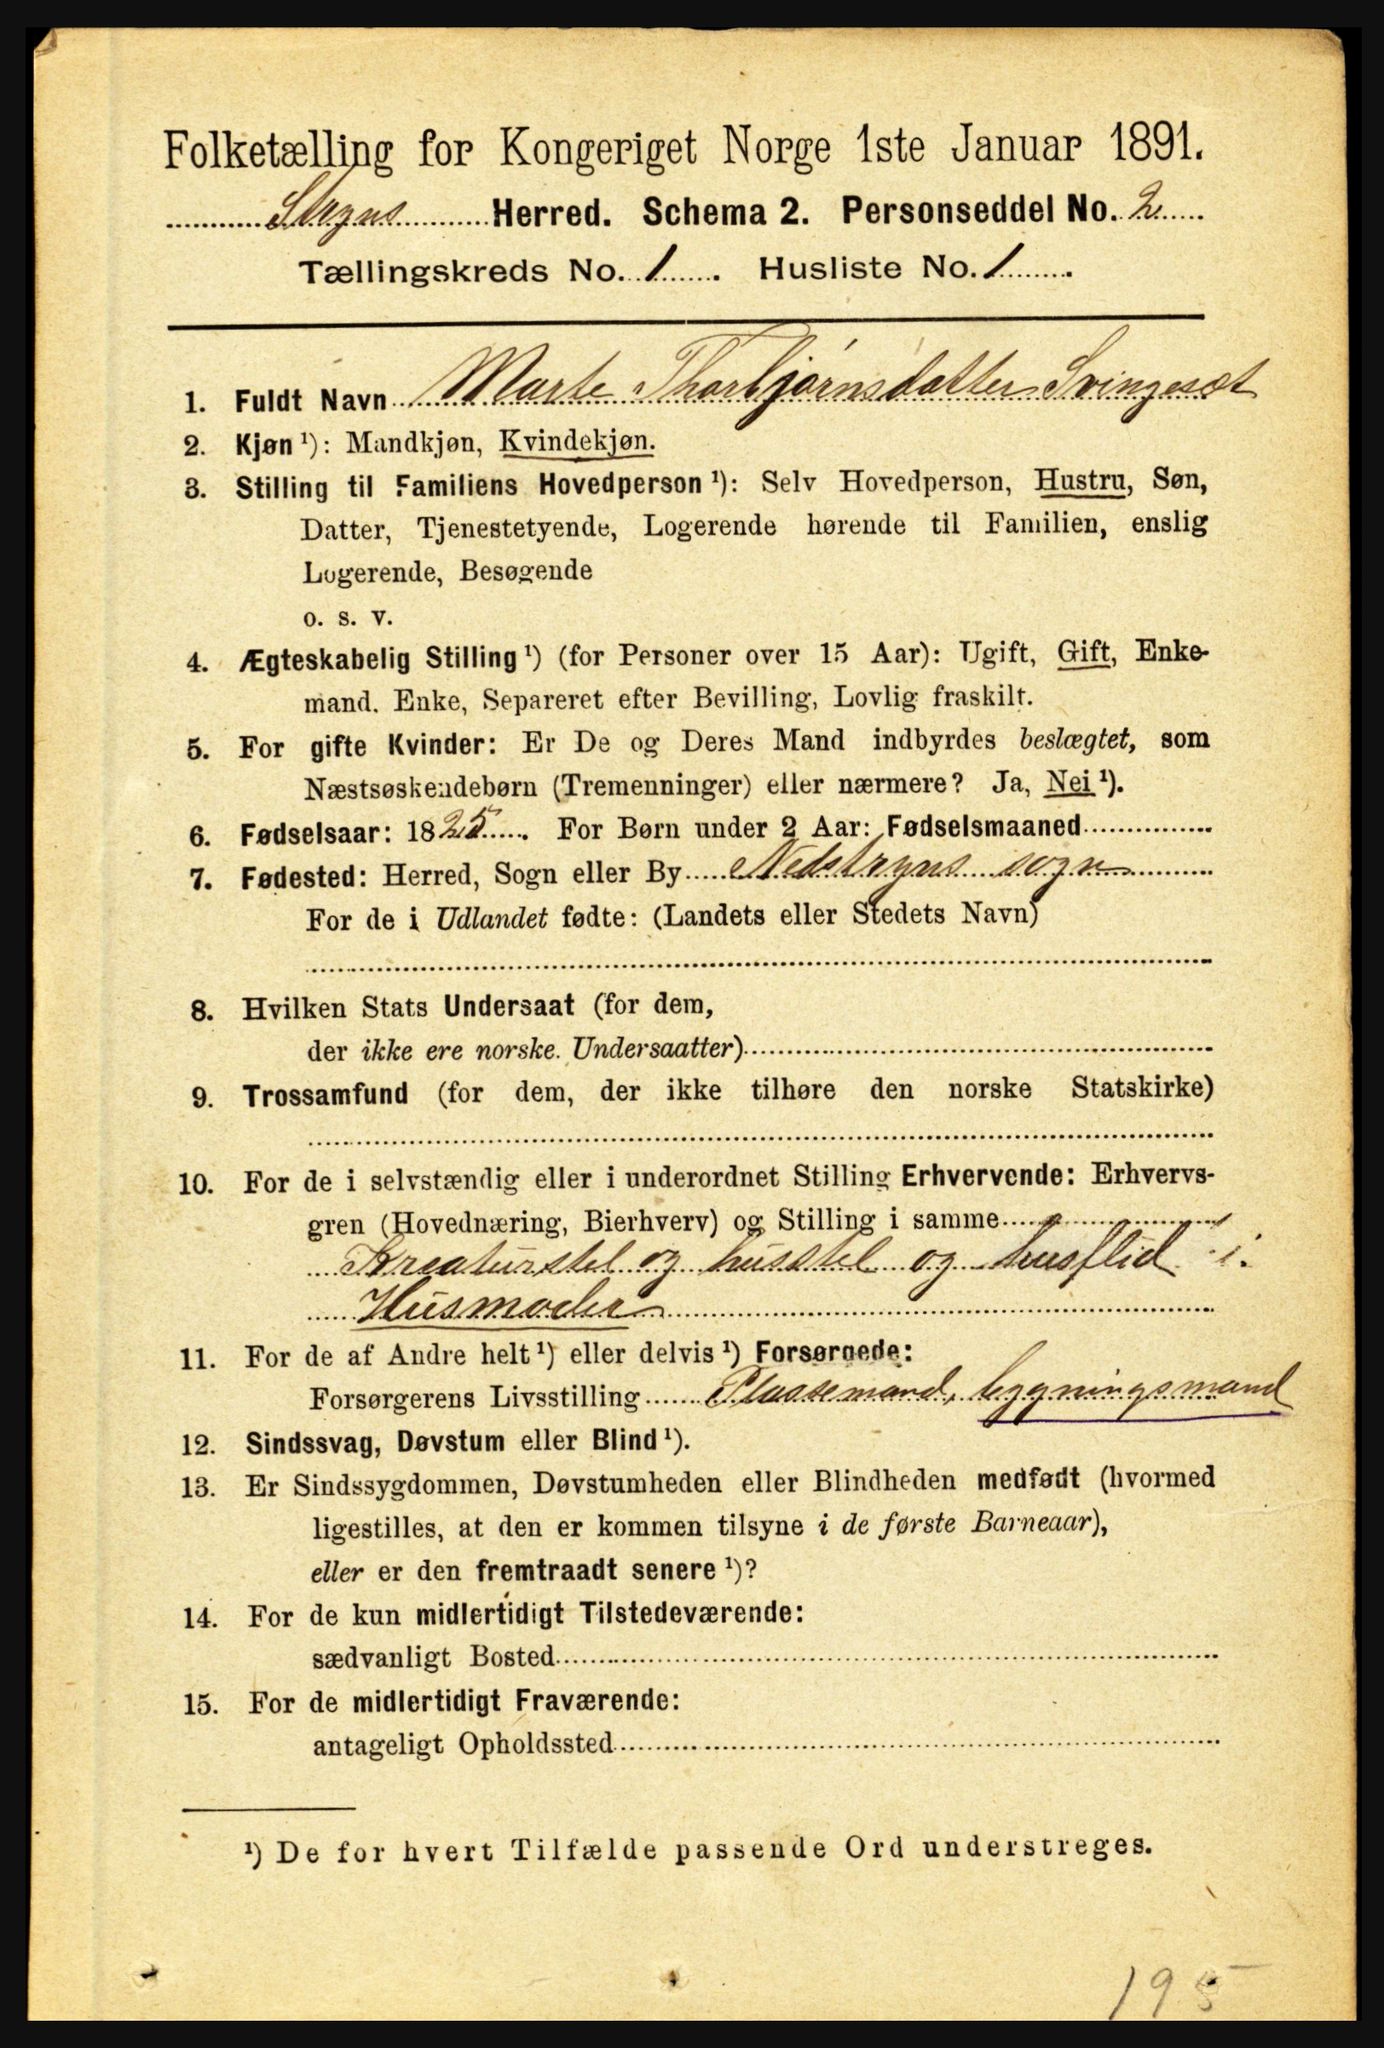 Folketælling for Kongeriget Norge 1ste Januar 1891.
Stryns Herred. Schema 2. Personseddel No. 2
Tællingskreds No. 1. Husliste No. 1.
1. Fuldt Navn Marte Thorbjørnsdatter Svingesæt
2. Kjøn ¹): Mandkjøn, Kvindekjøn.
3. Stilling til Familiens Hovedperson ¹): Selv Hovedperson, Hustru, Søn,
Datter, Tjenestetyende, Logerende hørende til Familien, enslig
Logerende, Besøgende
o. s. v.
4. Ægteskabelig Stilling ¹) (for Personer over 15 Aar): Ugift, Gift, Enke-
mand, Enke, Separeret efter Bevilling, Lovlig fraskilt.
5. For gifte Kvinder: Er De og Deres Mand indbyrdes beslægtet, som
Næstsøskendebørn (Tremenninger) eller nærmere? Ja, Nei ¹).
6. Fødselsaar: 1825. For Børn under 2 Aar: Fødselsmaaned
7. Fødested: Herred, Sogn eller By Nedstryns sogn
For de i Udlandet fødte: (Landets eller Stedets Navn)
8. Hvilken Stats Undersaat (for dem,
der ikke ere norske Undersaatter)
9. Trossamfund (for dem, der ikke tilhøre den norske Statskirke)
10. For de i selvstændig eller i underordnet Stilling Erhvervende: Erhvervs-
gren (Hovednæring, Bierhverv) og Stilling i samme
Kreaturstel og husstel og husflid i.
Husmoder
11. For de af Andre helt ¹) eller delvis ¹) Forsørgede:
Forsørgerens Livsstilling Plassemand, bygningsmand
12. Sindssvag, Døvstum eller Blind ¹).
13. Er Sindssygdommen, Døvstumheden eller Blindheden medfødt (hvormed
ligestilles, at den er kommen tilsyne i de første Barneaar),
eller er den fremtraadt senere ¹)?
14. For de kun midlertidigt Tilstedeværende:
sædvanligt Bosted
15. For de midlertidigt Fraværende:
antageligt Opholdssted
¹) De for hvert Tilfælde passende Ord understreges.
195